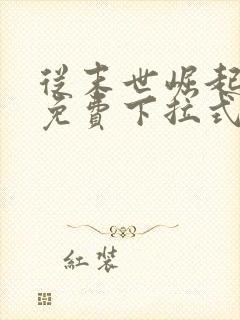 從末世崛起
免費下拉式
紅裝